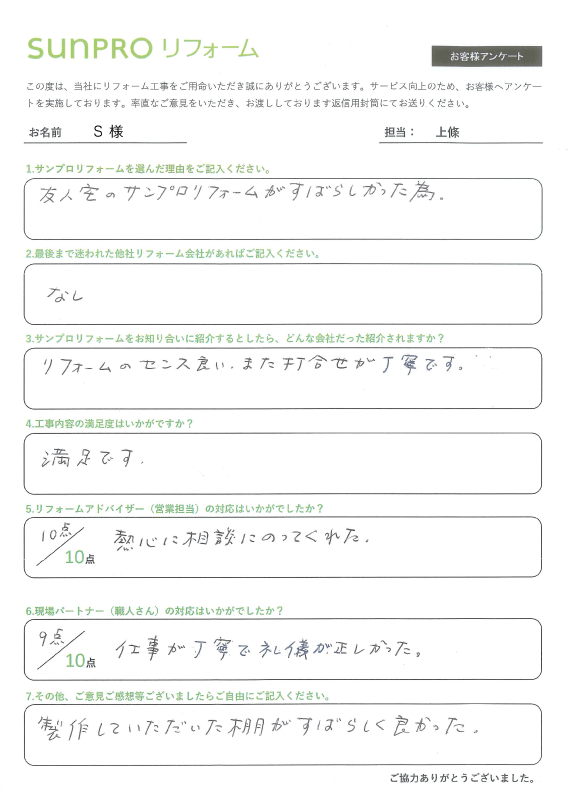 SUNPRO リフォーム
お客様アンケート
この度は、当社にリフォーム工事をご用命いただき誠にありがとうございます。サービス向上のため、お客様へアンケー
トを実施しております。率直なご意見をいただき、お渡ししております返信用封筒にてお送りください。
お名前 S 様 担当： 上條
1.サンプロリフォームを選んだ理由をご記入ください。
友人宅のサンプロリフォームがすばらしかった為。
2.最後まで迷われた他社リフォーム会社があればご記入ください。
なし
3.サンプロリフォームをお知り合いに紹介するとしたら、どんな会社だった紹介されますか？
リフォームのセンス良い、また打合せが丁寧です。
4.工事内容の満足度はいかがですか？
満足です．
5.リフォームアドバイザー（営業担当）の対応はいかがでしたか？
10点/10点 熱心に相談にのってくれた。
6.現場パートナー（職人さん）の対応はいかがでしたか？
9点/10点 仕事が丁寧で礼儀が正しかった。
7.その他、ご意見ご感想等ございましたらご自由にご記入ください。
製作していただいた棚がすばらしく良かった。
ご協力ありがとうございました。